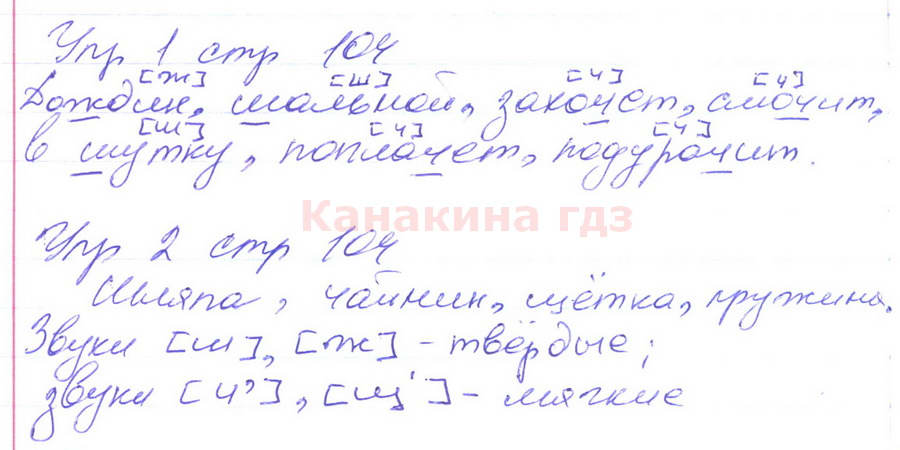 Упр 1 стр 104
[ж] [ш] [ч] [ч]
Дождик, шальной, захочет, смочит,
[ш] [ч] [ч]
в шутку, поплачет, подурачит.
Канакина гдз
Упр 2 стр 104
Шляпа, чайник, щётка, пружина.
Звуки [ш], [ж] - твёрдые;
звуки [ч'], [щ'] - мягкие